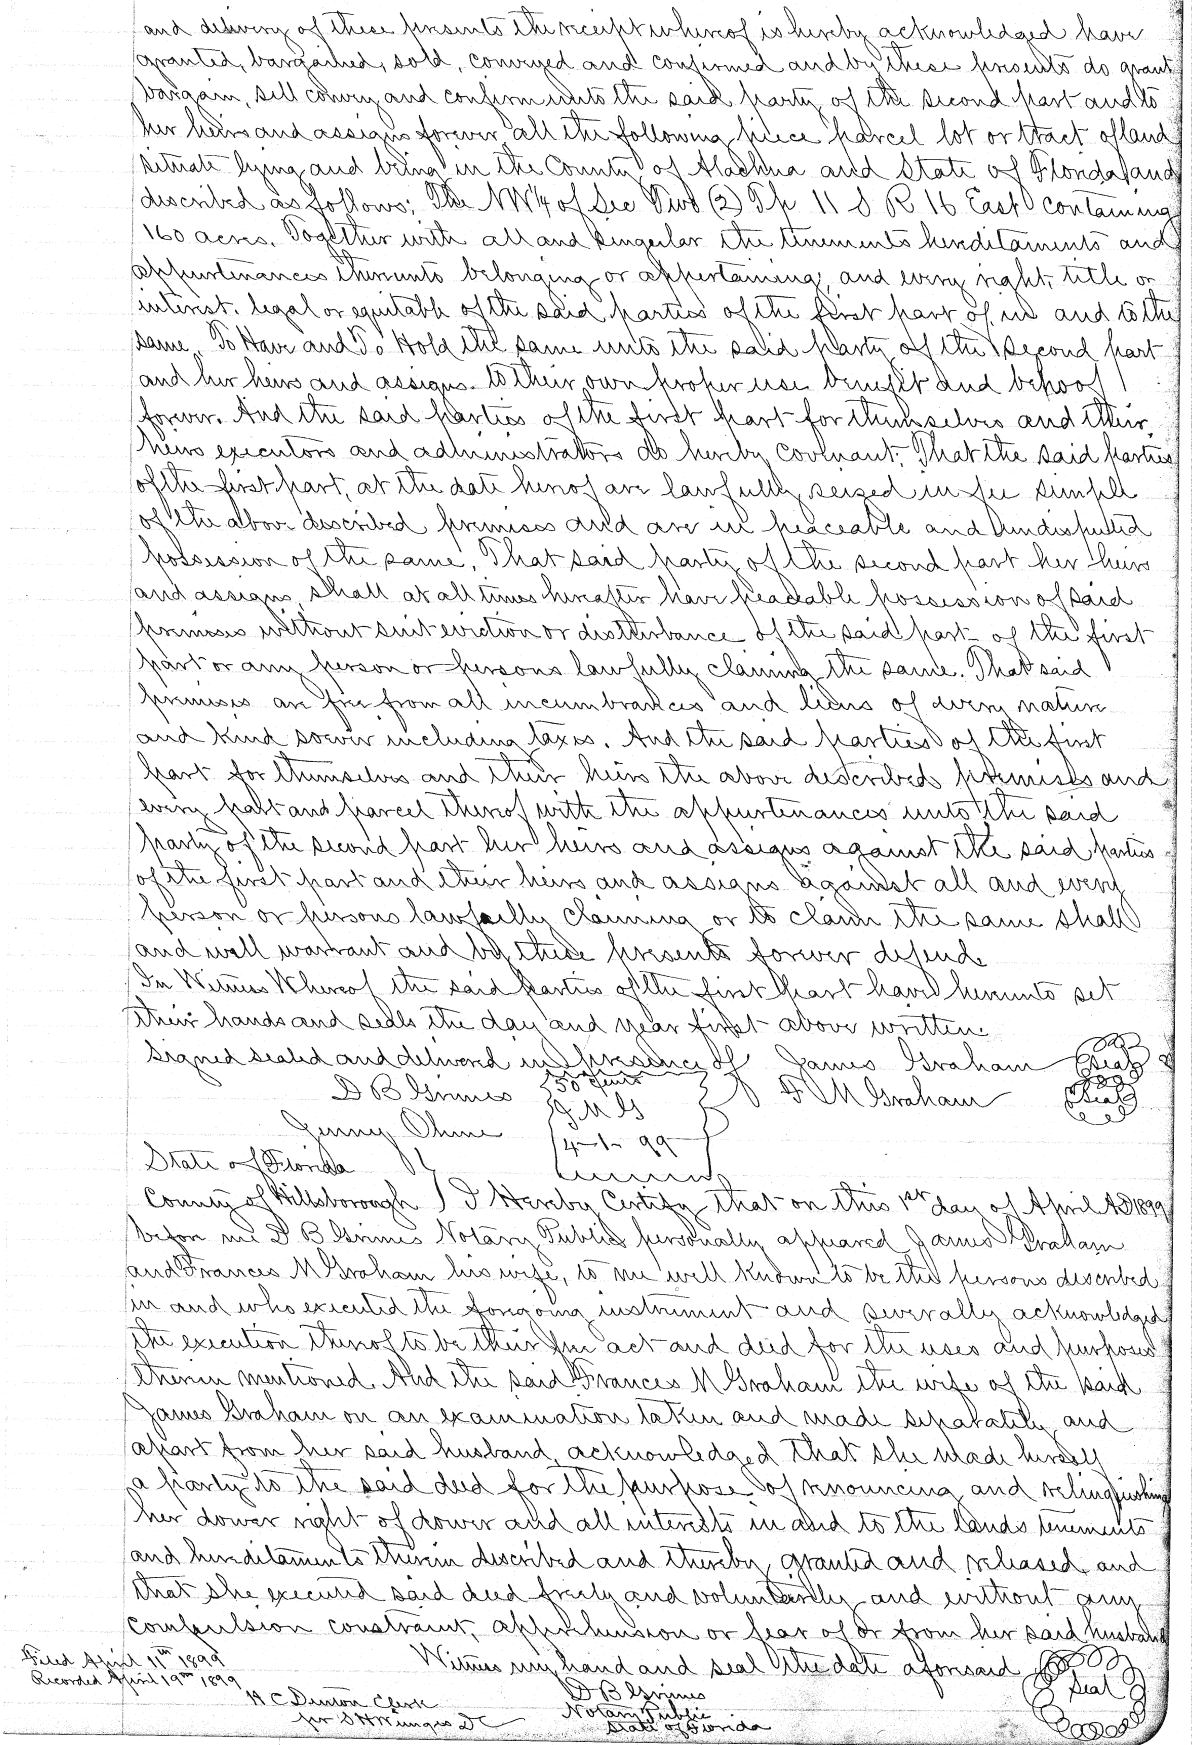 and delivery of these presents the receipt whereof is hereby acknowledged have
granted, bargained, sold, conveyed and confirmed and by these presents do grant
bargain, sell convey and confirm unto the said party of the second part and to
her heirs and assigns forever all the following piece parcel lot or tract of land
situate lying and being in the County of Alachua and State of Florida and
described as follows: The NW 1/4 of Sec Two (2) Tp 11 S R 16 East containing
160 acres. Together with all and singular the tenements hereditaments and
appurtenances thereunto belonging or appertaining, and every right, title or
interest. legal or equitable of the said parties of the first part of, in and to the
same. To Have and To Hold the same unto the said party of the second part
and her heirs and assigns. to their own proper use benefit and behoof
forever. And the said parties of the first part for themselves and their
heirs executors and administrators do hereby covenant. That the said parties
of the first part, at the date hereof are lawfully seized in fee simple
of the above described premises and are in peaceable and undisputed
possession of the same. That said party of the second part her heirs
and assigns, shall at all times hereafter have peaceable possession of said
premises without suit eviction or disturbance of the said part of the first
part or any person or persons lawfully claiming the same. That said
premises are free from all incumbrances and liens of every nature
and kind soever including taxes. And the said parties of the first
part for themselves and their heirs the above described premises and
every part and parcel thereof with the appurtenances unto the said
party of the second part her heirs and assigns against the said parties
of the first part and their heirs and assigns against all and every
person or persons lawfully claiming or to claim the same shall
and well warrant and by these presents forever defend.
In Witness Whereof the said parties of the first part have hereunto set
their hands and seals the day and year first above written.
Signed sealed and delivered in presence of James Graham Seal
D B Grimes 50 cents F M Graham Seal
J M G
Jenny 4-1-99
State of Florida
County of Hillsborough I Hereby Certify that on this 1st day of April AD 1899
before me D B Grimes Notary Public personally appeared James Graham
and Frances M Graham his wife, to me well known to be the persons described
in and who executed the foregoing instrument and severally acknowledged
the execution thereof to be their free act and deed for the uses and purposes
therein mentioned. And the said Frances M Graham the wife of the said
James Graham on an examination taken and made separately and
apart from her said husband, acknowledged that she made herself
a party to the said deed for the purpose of renouncing and relinquishing
her dower right of dower and all interests in and to the lands tenements
and hereditaments therein described and thereby granted and released and
that she executed said deed freely and voluntarily and without any
compulsion constraint, apprehension or fear of or from her said husband
Witness my hand and seal the date aforesaid Seal
D B Grimes
Notary Public
State of Florida
Filed April 11th 1899
Recorded April 19th 1899
H C Denton Clerk
per S H DC